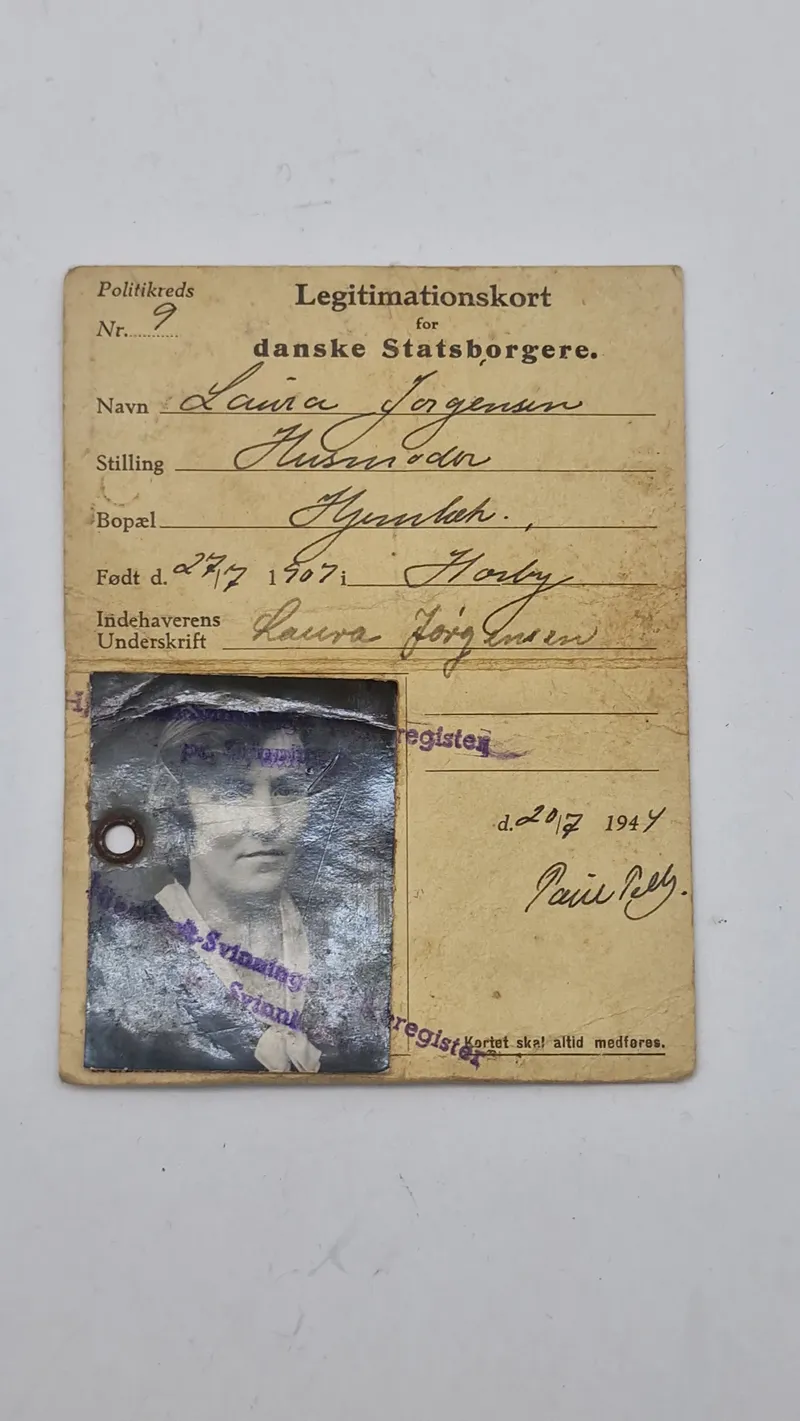 Politikreds
Nr. 9
Legitimationskort
for
danske Statsborgere.
Navn Laura Jørgensen
Stilling Husmoder
Bopæl Hjembæk.
Født d. 27/7 1907 i Hørby
Indehaverens
Underskrift Laura Jørgensen
register
d. 20/7 1944
-Svinning
Svinni
register
Kortet skal altid medføres.